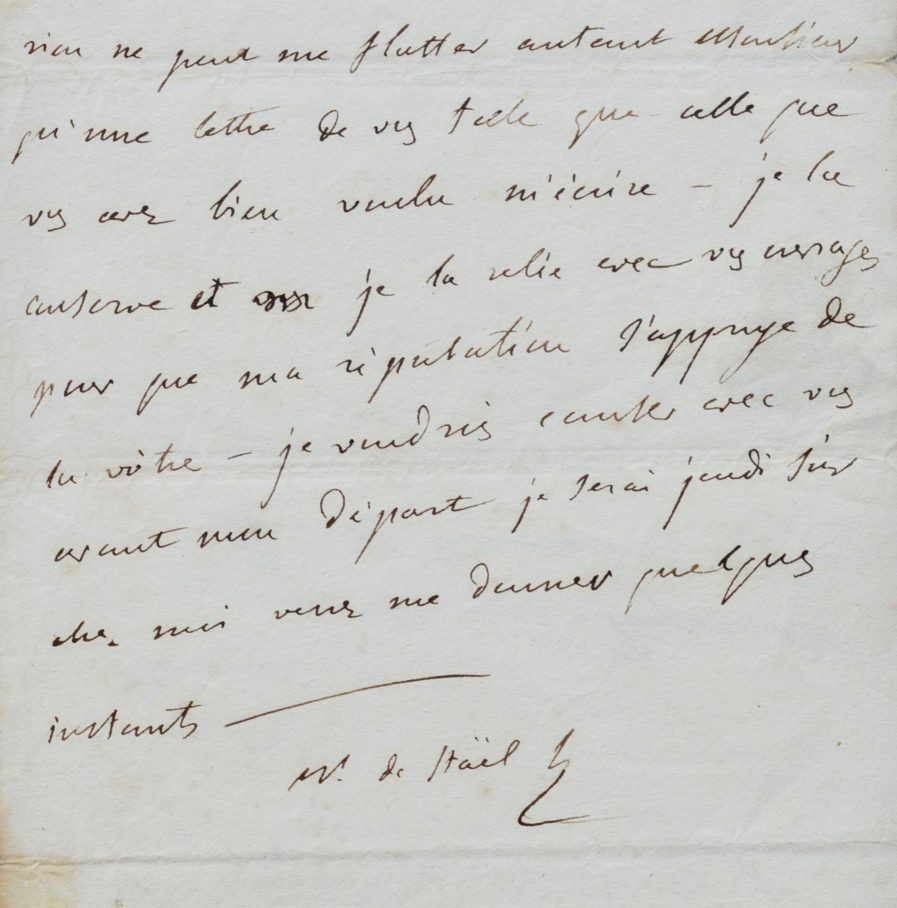 rien ne peut me flatter autant Monsieur
qu'une lettre de vs telle que celle que
vs avez bien voulu m'écrire – je la
conserve et je la relie avec vos ouvrages
pour que ma réputation s'appuye de
la vôtre – je voudrois causer avec vs
avant mon départ je serai jeudi soir
chez moi venez me donner quelques
instants
N. de Staël